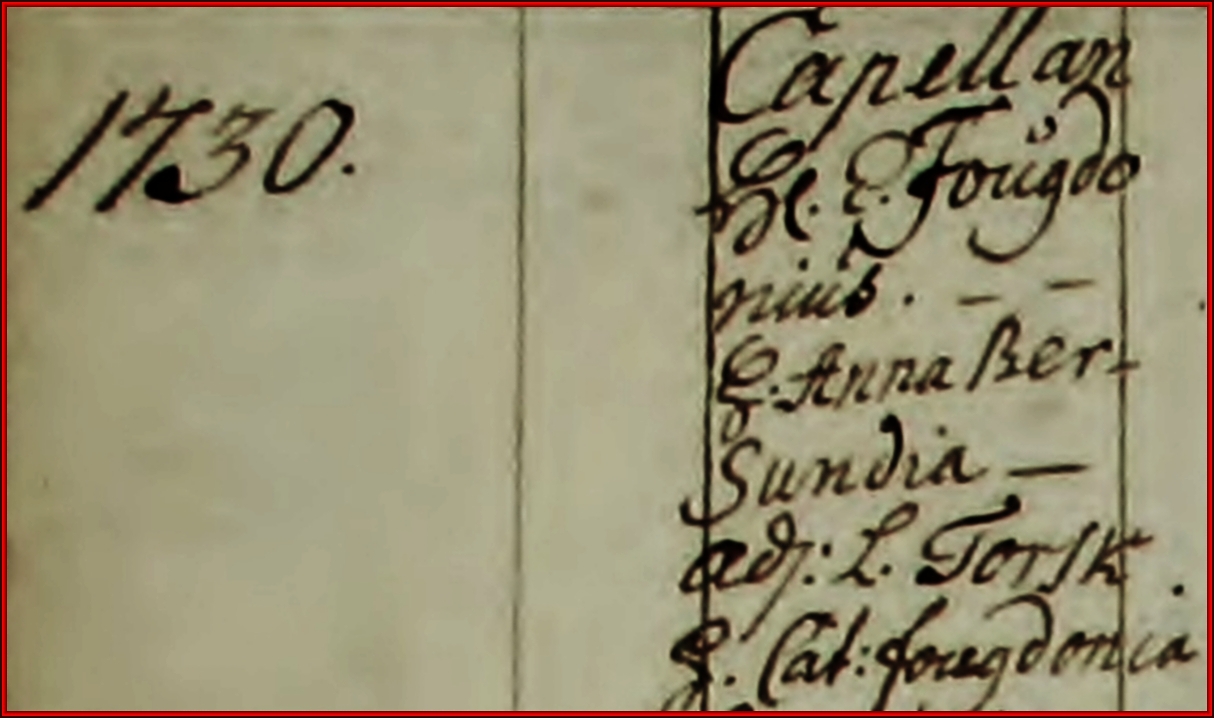 1730.
Capellan
Hl. E. Foŭgdo
nius. — —
H. Anna Ber-
Sundia —
adj: L. Torsk.
H. Cat: fougdonia